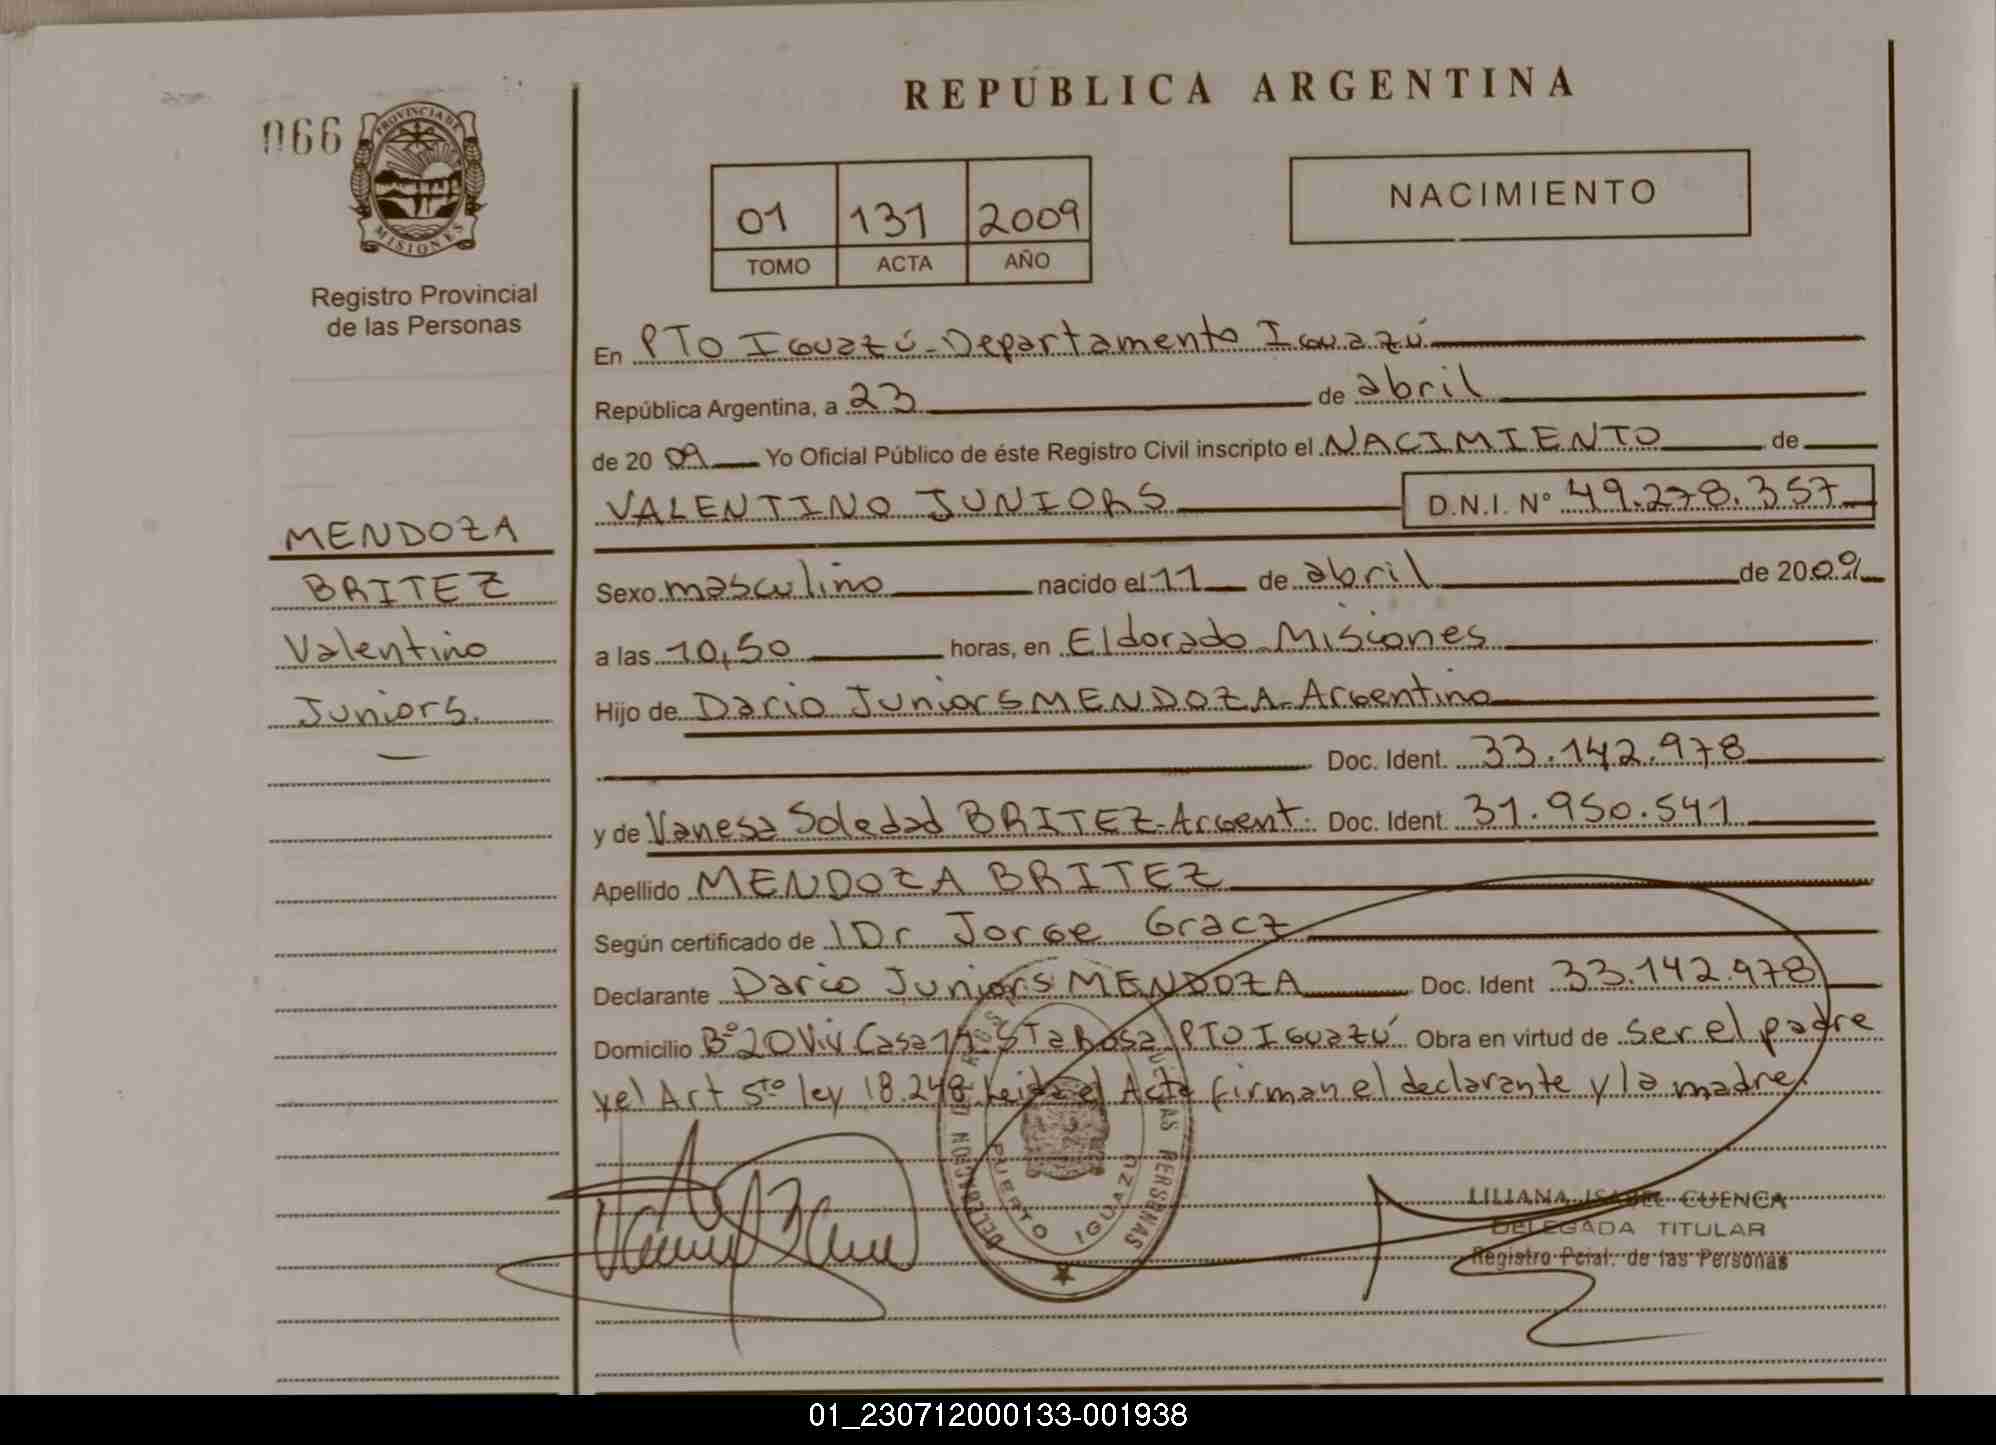 REPUBLICA ARGENTINA
066
PROVINCIA DE
MISIONES
Registro Provincial
de las Personas
01 131 2009
TOMO ACTA AÑO
NACIMIENTO
En PTO Iguazú-Departamento Iguazú
República Argentina, a 23 de abril
de 2009 Yo Oficial Público de éste Registro Civil inscripto el NACIMIENTO de
VALENTINO JUNIORS D.N.I. Nº 49.278.357
MENDOZA
BRITEZ
Valentino
Juniors.
Sexo masculino nacido el 11 de abril de 2009
a las 10,50 horas, en Eldorado-Misiones
Hijo de Dario Juniors MENDOZA-Argentino
Doc. Ident. 33.142.978
y de Vanesa Soledad BRITEZ-Argent. Doc. Ident. 31.950.541
Apellido MENDOZA BRITEZ
Según certificado de 1Dr Jorge Gracz
Declarante Dario Juniors MENDOZA Doc. Ident 33.142.978
Domicilio Bº 20 Viv Casa Sta Rosa PTO Iguazú Obra en virtud de ser el padre
y el Art 5to ley 18.248 Leida el Acta firman el declarante y la madre.
DELEGACION DE LAS PERSONAS
PUERTO IGUAZU
LILIANA ISABEL CUENCA
DELEGADA TITULAR
Registro Pcial. de las Personas
01_230712000133-001938